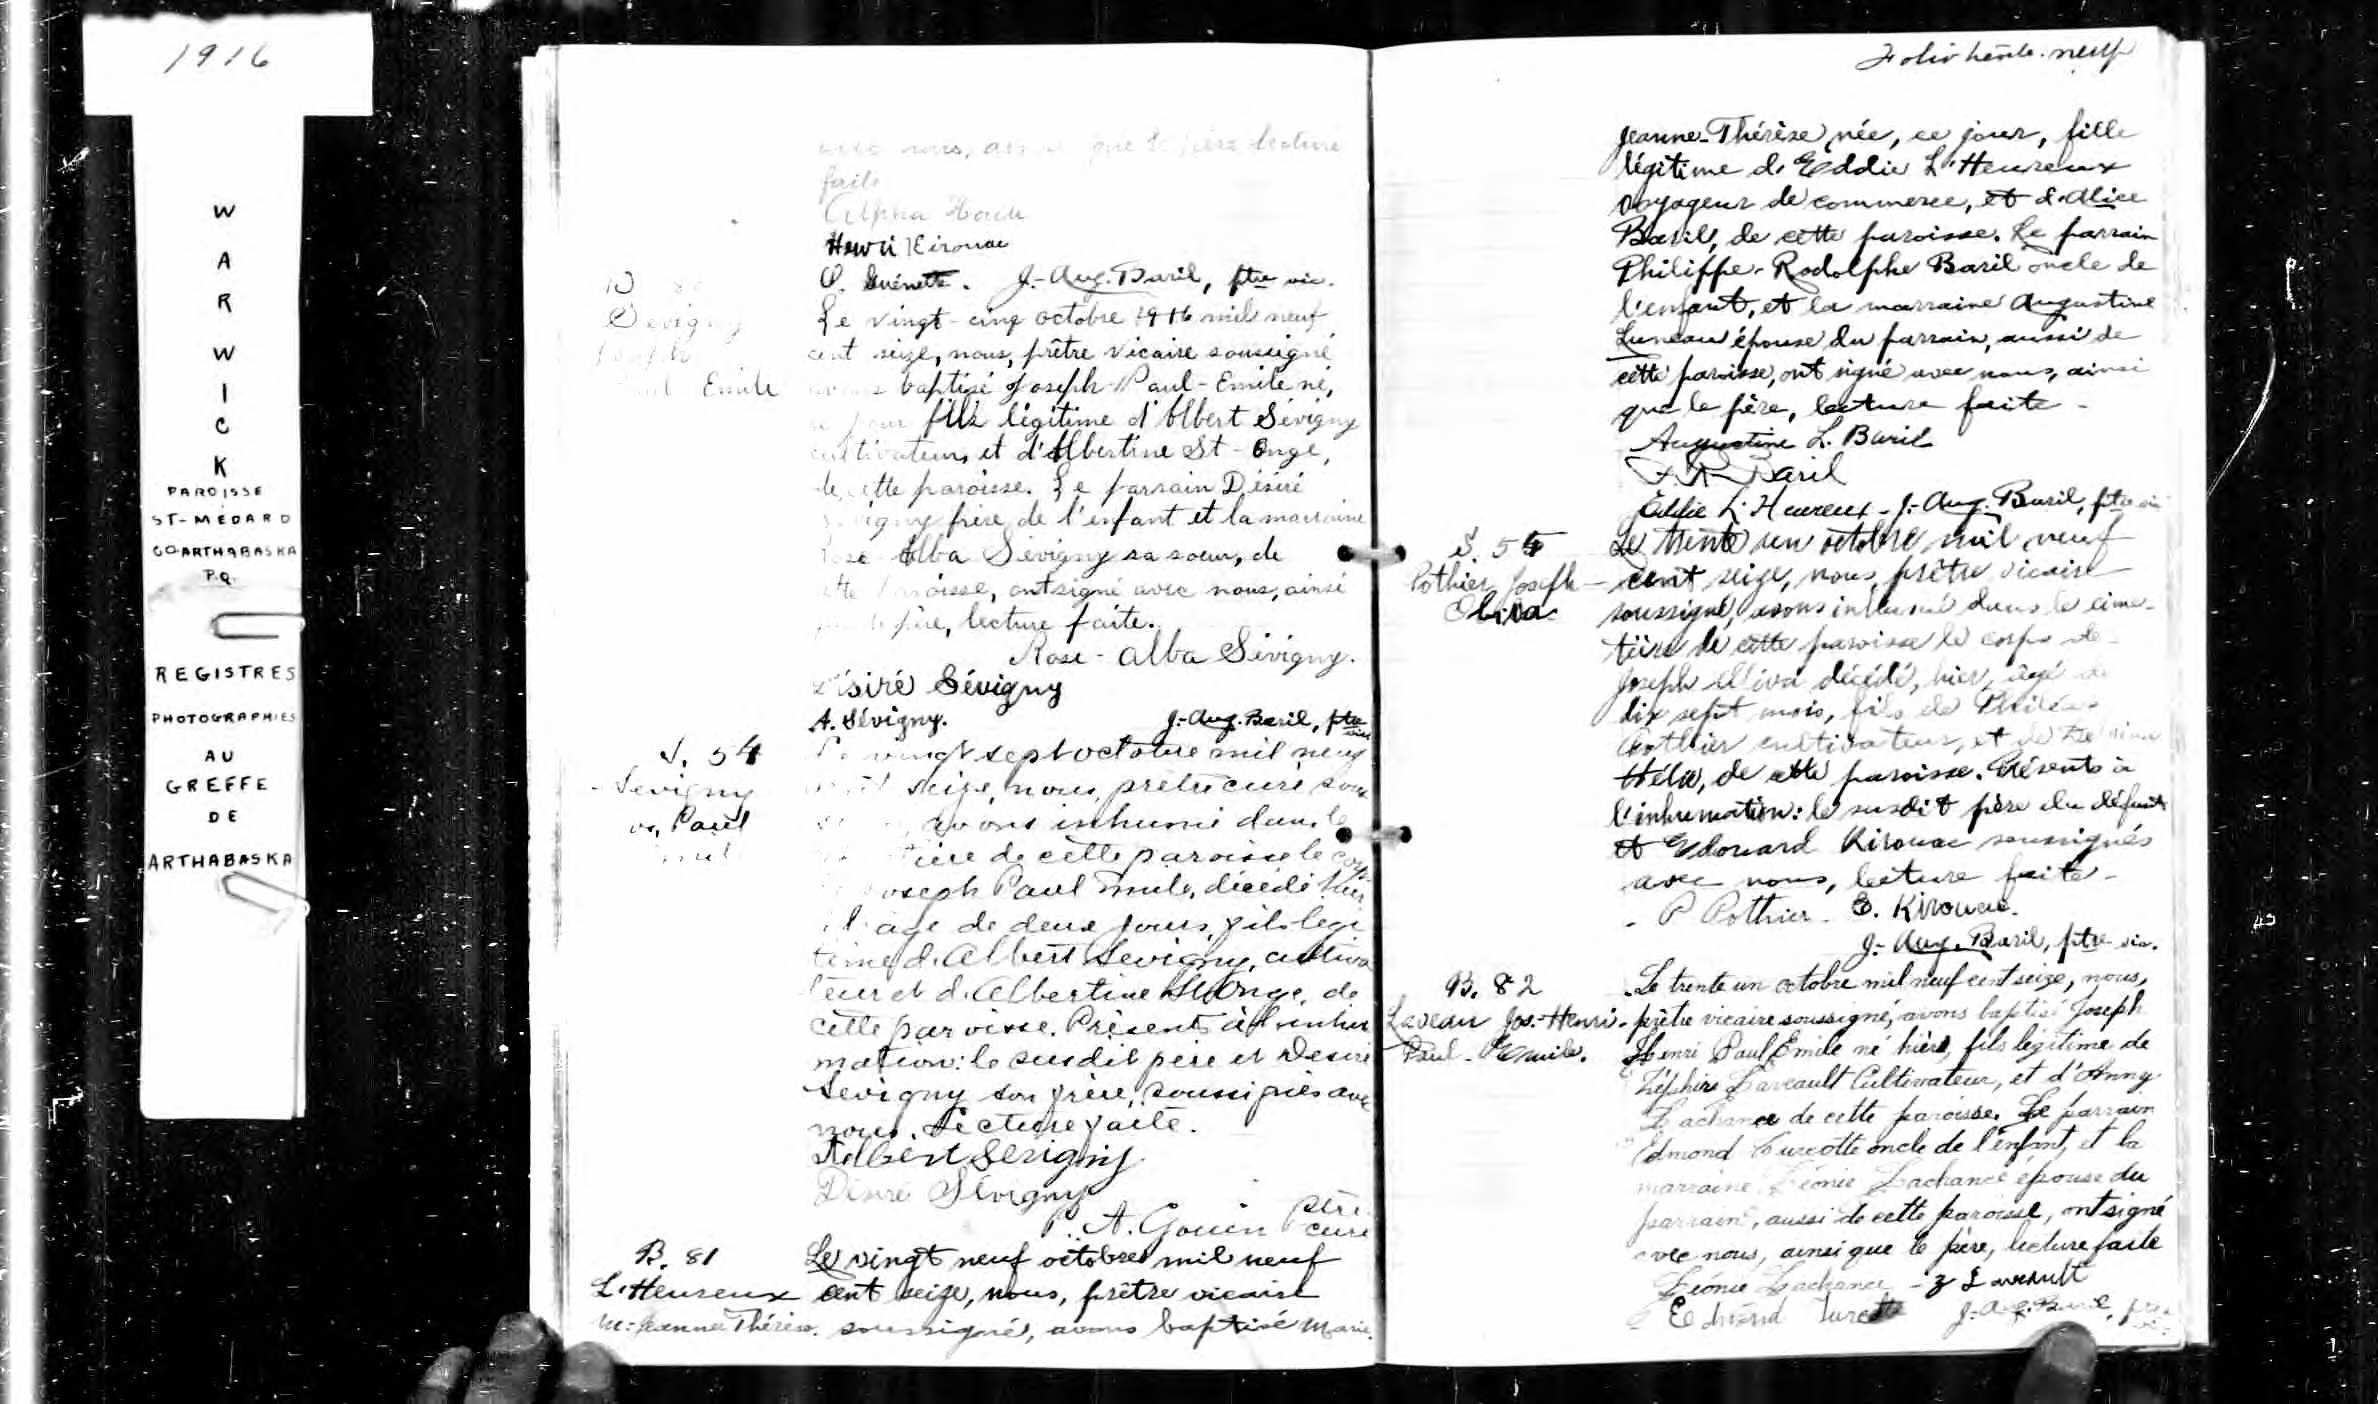 1916
W
A
R
W
I
C
K
PAROISSE
ST-MÉDARD
CO-ARTHABASKA
P.Q.
REGISTRES
PHOTOGRAPHIES
AU
GREFFE
DE
ARTHABASKA
avec nous, que le père lecture
faite
Alpha
Henri Kirouac
O. Guénette. J.-Aug. Baril, ptre vic.
B 80
Sévigny
Joseph
Paul Emile
Le vingt-cinq octobre 1916 mil neuf
cent seize, nous, prêtre vicaire soussigné
avons baptisé Joseph-Paul-Emile né,
ce jour fils légitime d'Albert Sévigny
cultivateur, et d'Albertine St-Onge,
de cette paroisse. Le parrain Désiré
Sévigny frère de l'enfant et la marraine
Rose-Alba Sévigny sa soeur, de
cette paroisse, ont signé avec nous, ainsi
que le père, lecture faite.
Rose-Alba Sévigny.
Désiré Sévigny
A. Sévigny. J.-Aug. Baril, ptre
vic
S. 54
Sevigny
Jos, Paul
Emile
Le vingt sept octobre mil neuf
cent seize, nous, prêtre curé sous
signé, avons inhumé dans le
cimetière de cette paroisse le corps
de Joseph Paul Emile, décédé hier
à l'age de deux jours, fils légi
time d'Albert Sevigny, cultiva
teur et d'Albertine St Onge, de
cette paroisse. Présents à l'inhu
mation: le susdit père et Desiré
Sevigny son frère, soussignés avec
nous. Lecture faite.
Albert Sévigny
Désiré Sévigny
P. A. Gouin Ptre
curé
B. 81
L'Heureux
M: Jeanne Thérèse.
Le vingt neuf octobre mil neuf
cent seize, nous, prêtre vicaire
soussigné, avons baptisé Marie
Folio trente-neuf
Jeanne-Thérèse née, ce jour, fille
légitime de Eddie L'Heureux
voyageur de commerce, et d'Alice
Baril, de cette paroisse. Le parrain
Philippe-Rodolphe Baril oncle de
l'enfant, et la marraine Augustine
Luneau épouse du parrain, aussi de
cette paroisse, ont signé avec nous, ainsi
que le père, lecture faite-
Augustine L. Baril
P. R. Baril
Eddie L'Heureux - J.-Aug. Baril, ptre vic
S. 55
Pothier Joseph
Oliva
Le trente un octobre mil neuf
cent seize, nous, prêtre vicaire
soussigné, avons inhumé dans le cime-
tière de cette paroisse le corps de
Joseph Oliva décédé, hier, âgé de
dix sept mois, fils de
Pothier cultivateur, et de
Hélie, de cette paroisse. Présents à
l'inhumation: le susdit père du défunt
et Edouard Kirouac soussignés
avec nous, lecture faite-
P Pothier - E. Kirouac.
J.-Aug. Baril, ptre vic.
B. 82
Laveau Jos.-Henri-
Paul-Emile.
Le trente un octobre mil neuf cent seize, nous,
prêtre vicaire soussigné, avons baptisé Joseph
Henri Paul Emile né hier, fils légitime de
Zéphire Laveault Cultivateur, et d'Anny
Lachance de cette paroisse. Le parrain
Edmond Turcotte oncle de l'enfant, et la
marraine Léonie Lachance épouse du
parrain, aussi de cette paroisse, ont signé
avec nous, ainsi que le père, lecture faite
Léonie Lachance - Z Laveault
Edmond Turcotte J.-Aug. Baril, ptre
vic.